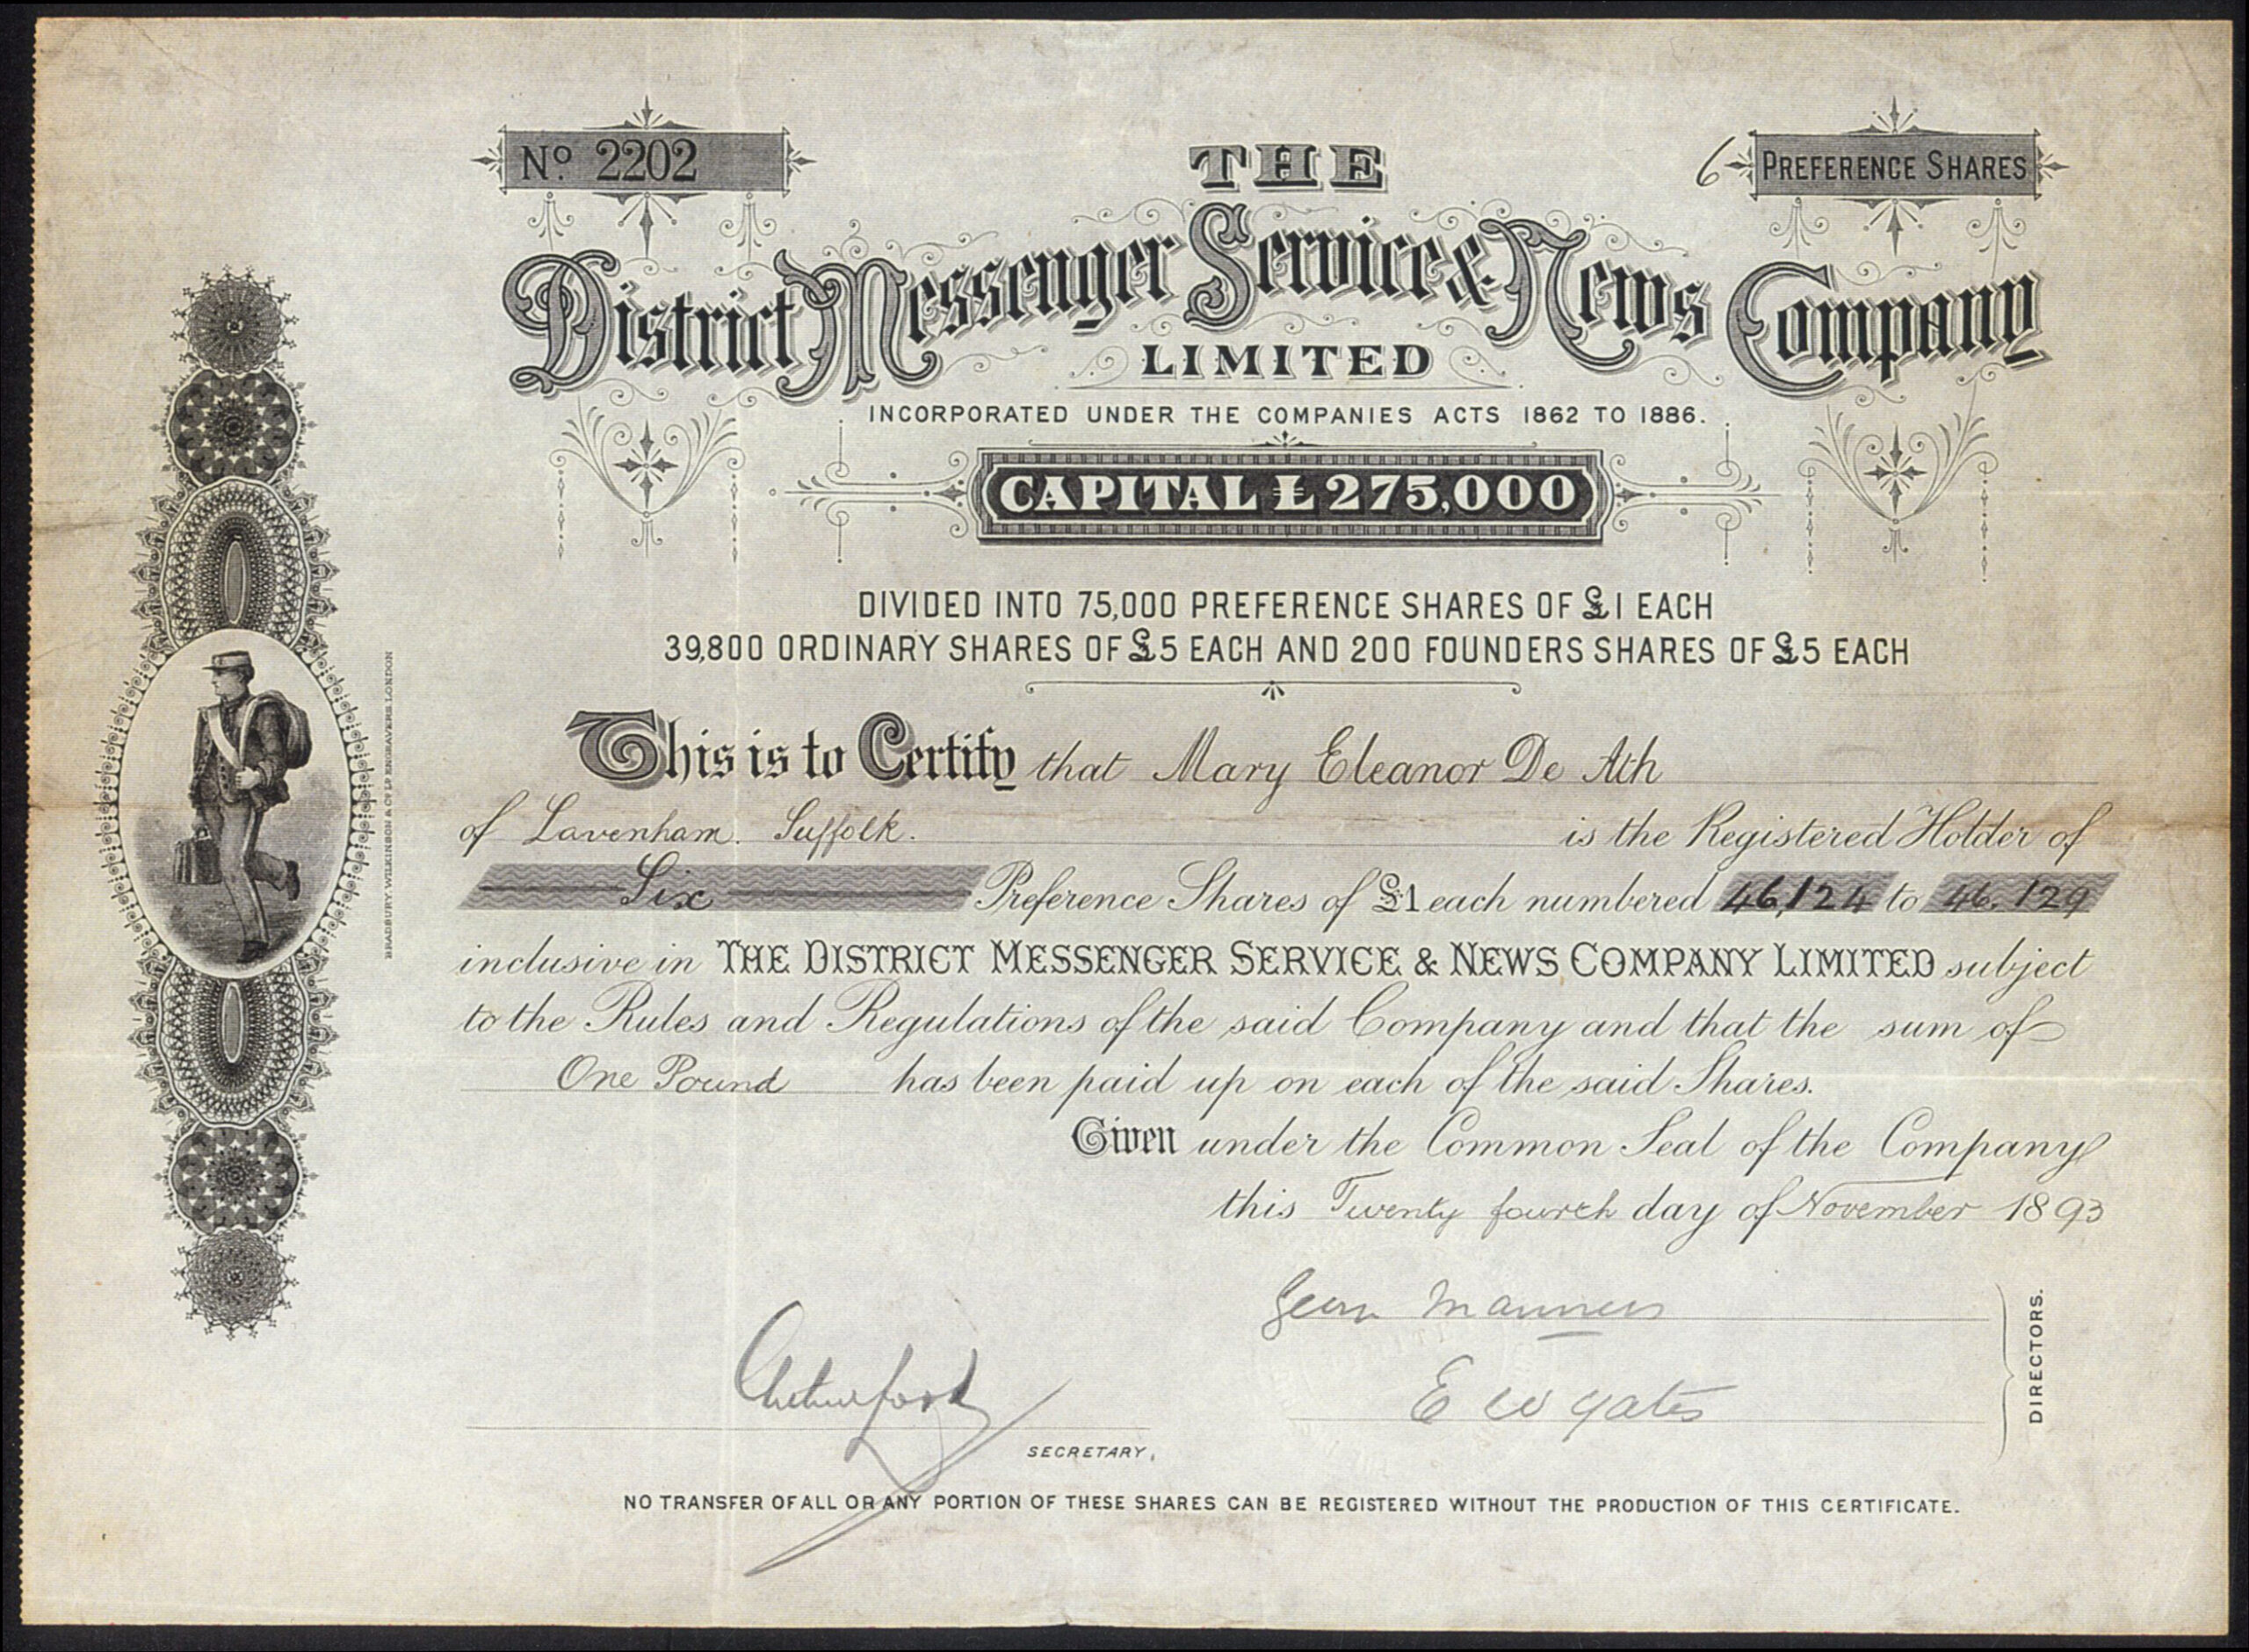 No. 2202
6 PREFERENCE SHARES
THE
District Messenger Service & News Company
LIMITED
INCORPORATED UNDER THE COMPANIES ACTS 1862 TO 1886.
CAPITAL £275,000
DIVIDED INTO 75,000 PREFERENCE SHARES OF £1 EACH
39,800 ORDINARY SHARES OF £5 EACH AND 200 FOUNDERS SHARES OF £5 EACH
This is to Certify that Mary Eleanor De Ath
of Lavenham. Suffolk. is the Registered Holder of
Six Preference Shares of £1 each numbered 46,124 to 46,129
inclusive in THE DISTRICT MESSENGER SERVICE & NEWS COMPANY LIMITED subject
to the Rules and Regulations of the said Company and that the sum of
One Pound has been paid up on each of the said Shares.
Given under the Common Seal of the Company
this Twenty fourth day of November 1893
Manners
E W Yates
DIRECTORS.
SECRETARY,
NO TRANSFER OF ALL OR ANY PORTION OF THESE SHARES CAN BE REGISTERED WITHOUT THE PRODUCTION OF THIS CERTIFICATE.
BRADBURY, WILKINSON & Co. LD. ENGRAVERS, LONDON